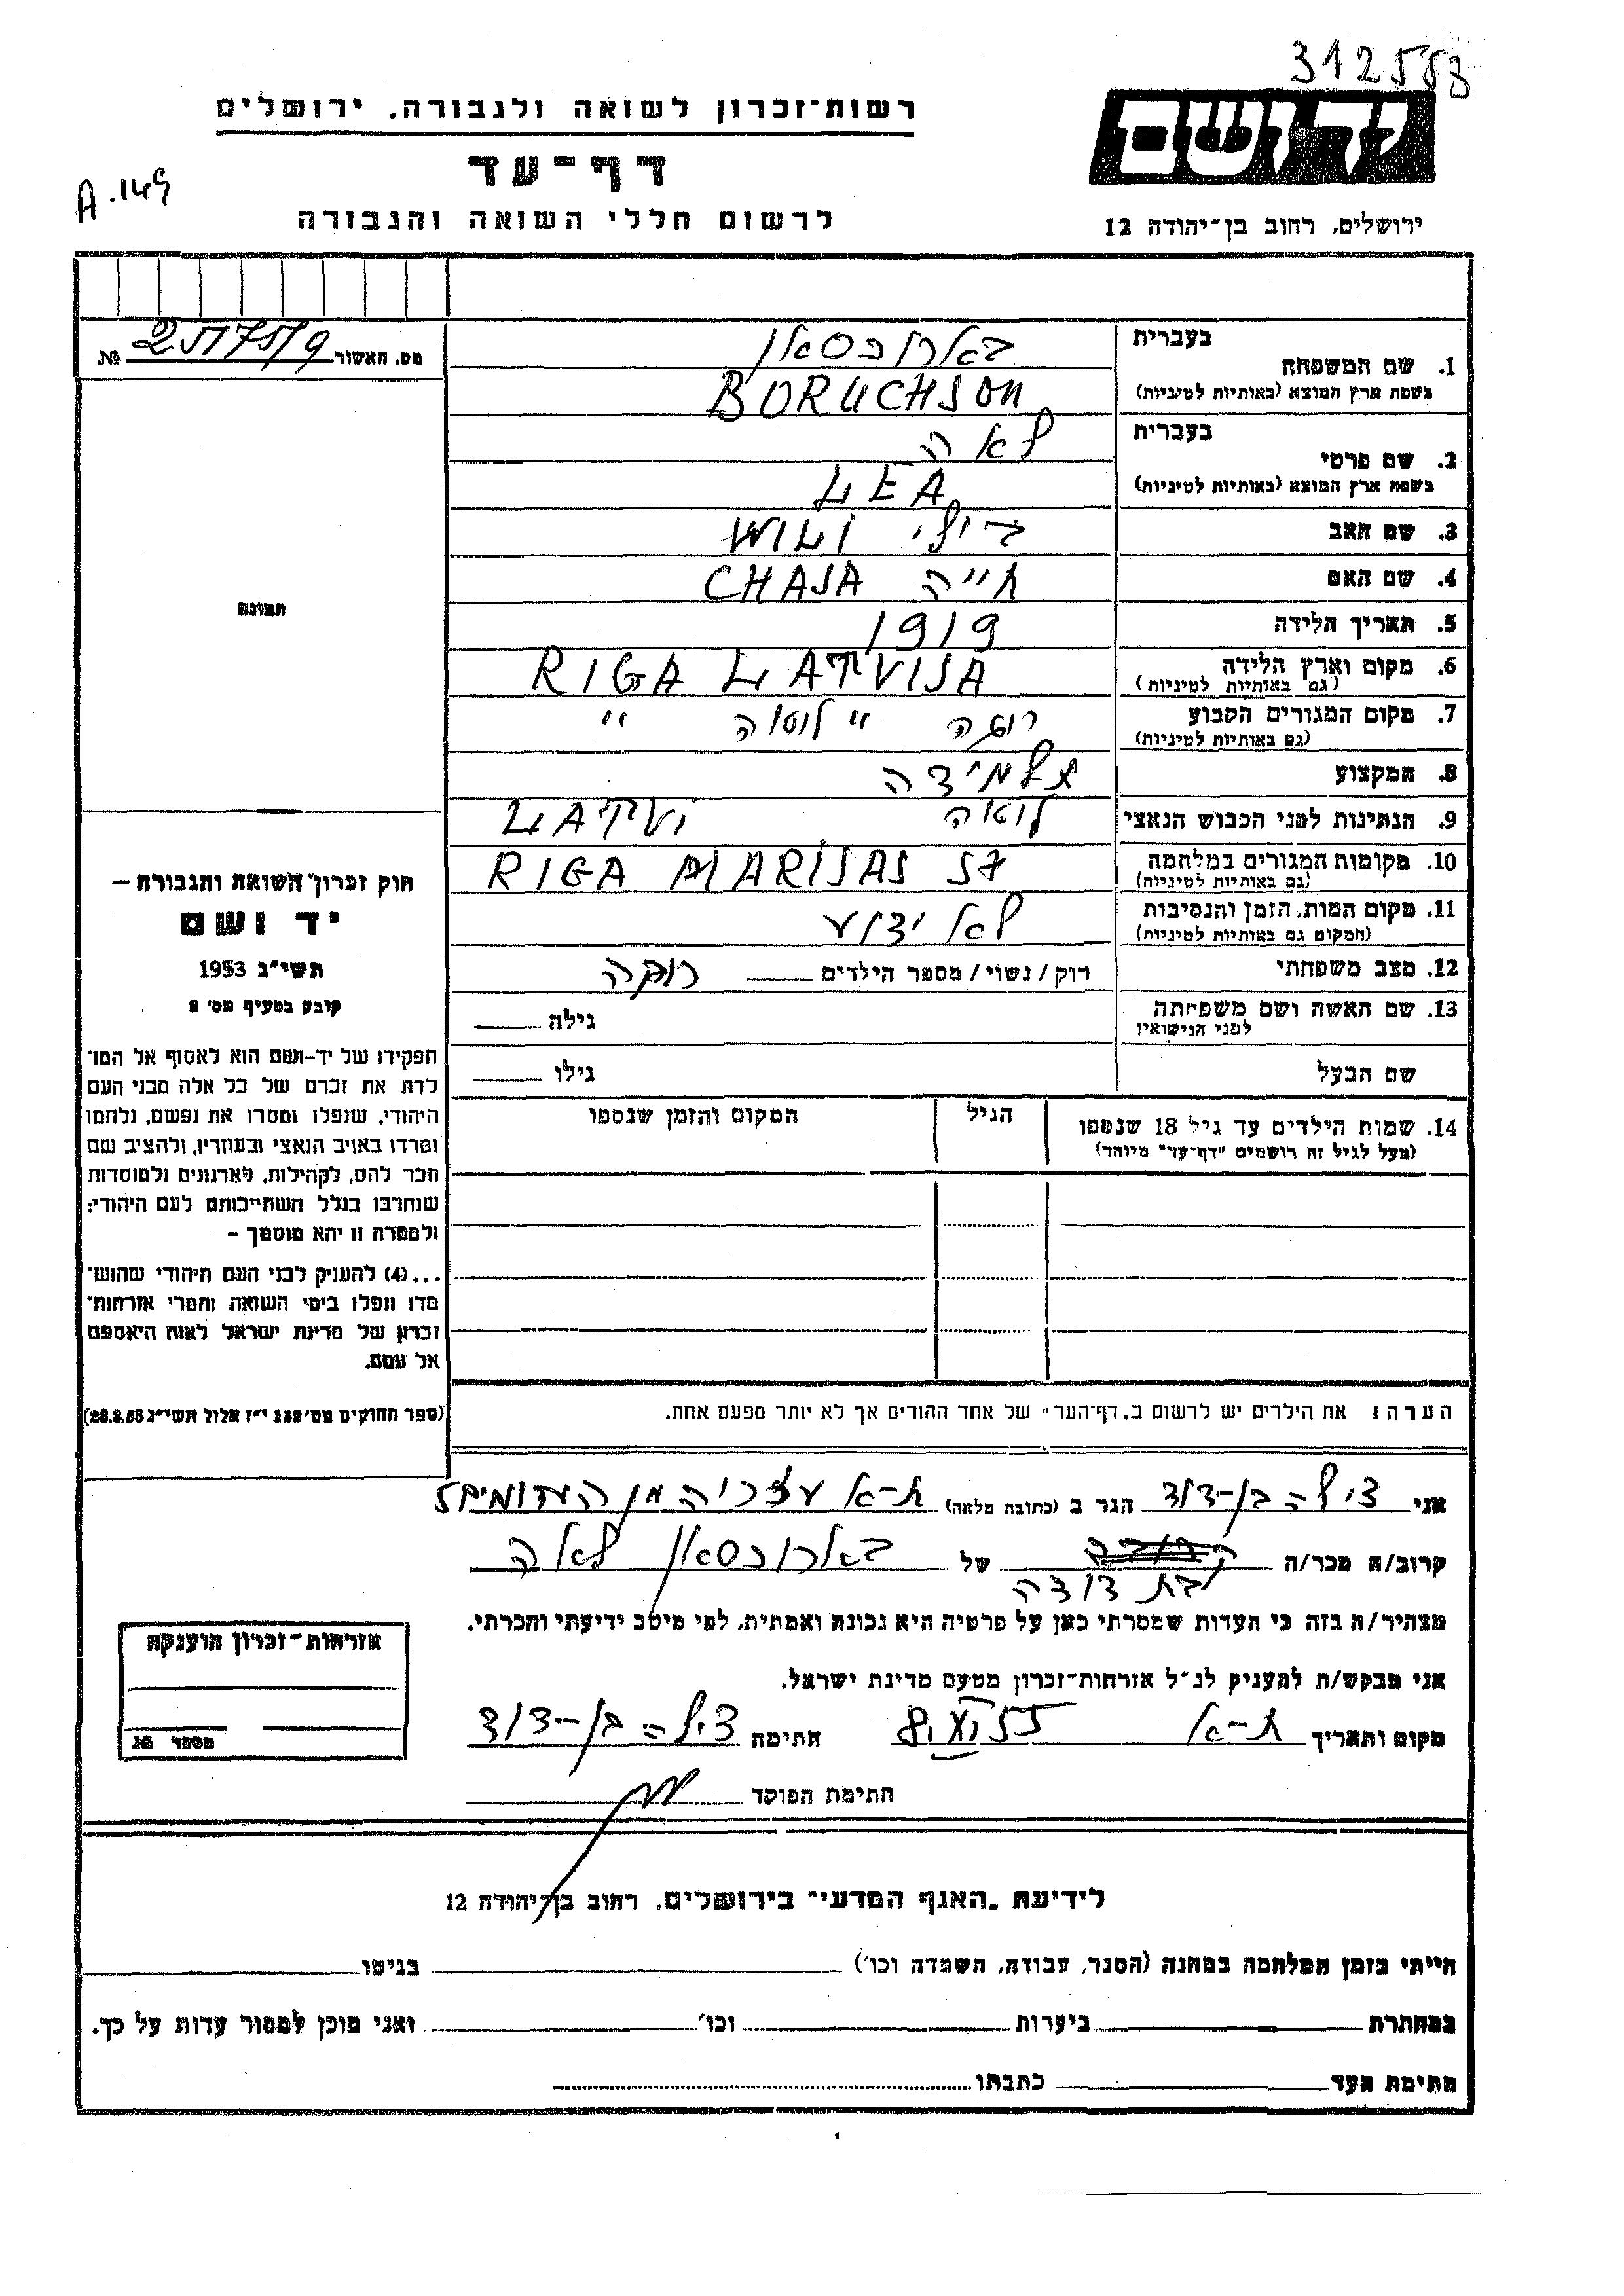 312553
רשות־זכרון לשואה ולגבורה, ירושלים
יד ושם
דף־עד
A.149
לרשום חללי השואה והגבורה
ירושלים, רחוב בן־יהודה 12
מס. האשור №
1. שם המשפחה בעברית בארוכסאון
בשפת ארץ המוצא (באותיות לטיניות) BORUCHSON
2. שם פרטי בעברית לאה
בשפת ארץ המוצא (באותיות לטיניות) LEA
3. שם האב וילי WILI
4. שם האם חייה CHAJA
5. תאריך הלידה 1919
6. מקום וארץ הלידה RIGA LATVIJA
(גם באותיות לטיניות)
7. מקום המגורים הקבוע ריגה " לטויה "
(גם באותיות לטיניות)
8. המקצוע תלמידה
9. הנתינות לפני הכבוש הנאצי לטויה LATVI
10. מקומות המגורים במלחמה RIGA MARIJAS 57
(גם באותיות לטיניות)
11. מקום המות, הזמן והנסיבות לא ידוע
(המקום גם באותיות לטיניות)
12. מצב משפחתי רוק/נשוי/מספר הילדים רוקה
13. שם האשה ושם משפחתה גילה
לפני הנישואין
שם הבעל גילו
14. שמות הילדים עד גיל 18 שנספו הגיל המקום והזמן שנספו
(מעל לגיל זה רושמים "דף־עד" מיוחד)
הערה: את הילדים יש לרשום ב„דף־העד" של אחד ההורים אך לא יותר מפעם אחת.
תמונה
חוק זכרון השואה והגבורה –
יד ושם
תשי"ג 1953
קובע בסעיף מס' 2
תפקידו של יד-ושם הוא לאסוף אל המו־
לדת את זכרם של כל אלה מבני העם
היהודי, שנפלו ומסרו את נפשם, נלחמו
ומרדו באויב הנאצי ובעוזריו, ולהציב שם
וזכר להם, לקהילות, לארגונים ולמוסדות
שנחרבו בגלל השתייכותם לעם היהודי;
ולמטרה זו יהא מוסמך –
...(4) להעניק לבני העם היהודי שהוש־
מדו ונפלו בימי השואה והמרי אזרחות־
זכרון של מדינת ישראל לאות היאספם
אל עמם.
(ספר החוקים מס' 132 י"ז אלול תשי"ג 28.8.53)
אני צילה בן-דוד הגר ב (כתובת מלאה) ת-א עזריה מן האדומים
קרוב/ה מכר/ה בת דודה של בארוכסאון לאה
מצהיר/ה בזה כי העדות שמסרתי כאן על פרטיה היא נכונה ואמתית, לפי מיטב ידיעתי והכרתי.
אני מבקש/ת להעניק לנ"ל אזרחות־זכרון מטעם מדינת ישראל.
מקום ותאריך ת-א חתימה צילה בן-דוד
חתימת הפוקד
אזרחות־זכרון הוענקה
מספר №
לידיעת „האגף המדעי" בירושלים, רחוב בן־יהודה 12
הייתי בזמן המלחמה במחנה (הסגר, עבודה, השמדה וכו') בגיטו
במחתרת ביערות וכו' ואני מוכן למסור עדות על כך.
חתימת העד כתבתו